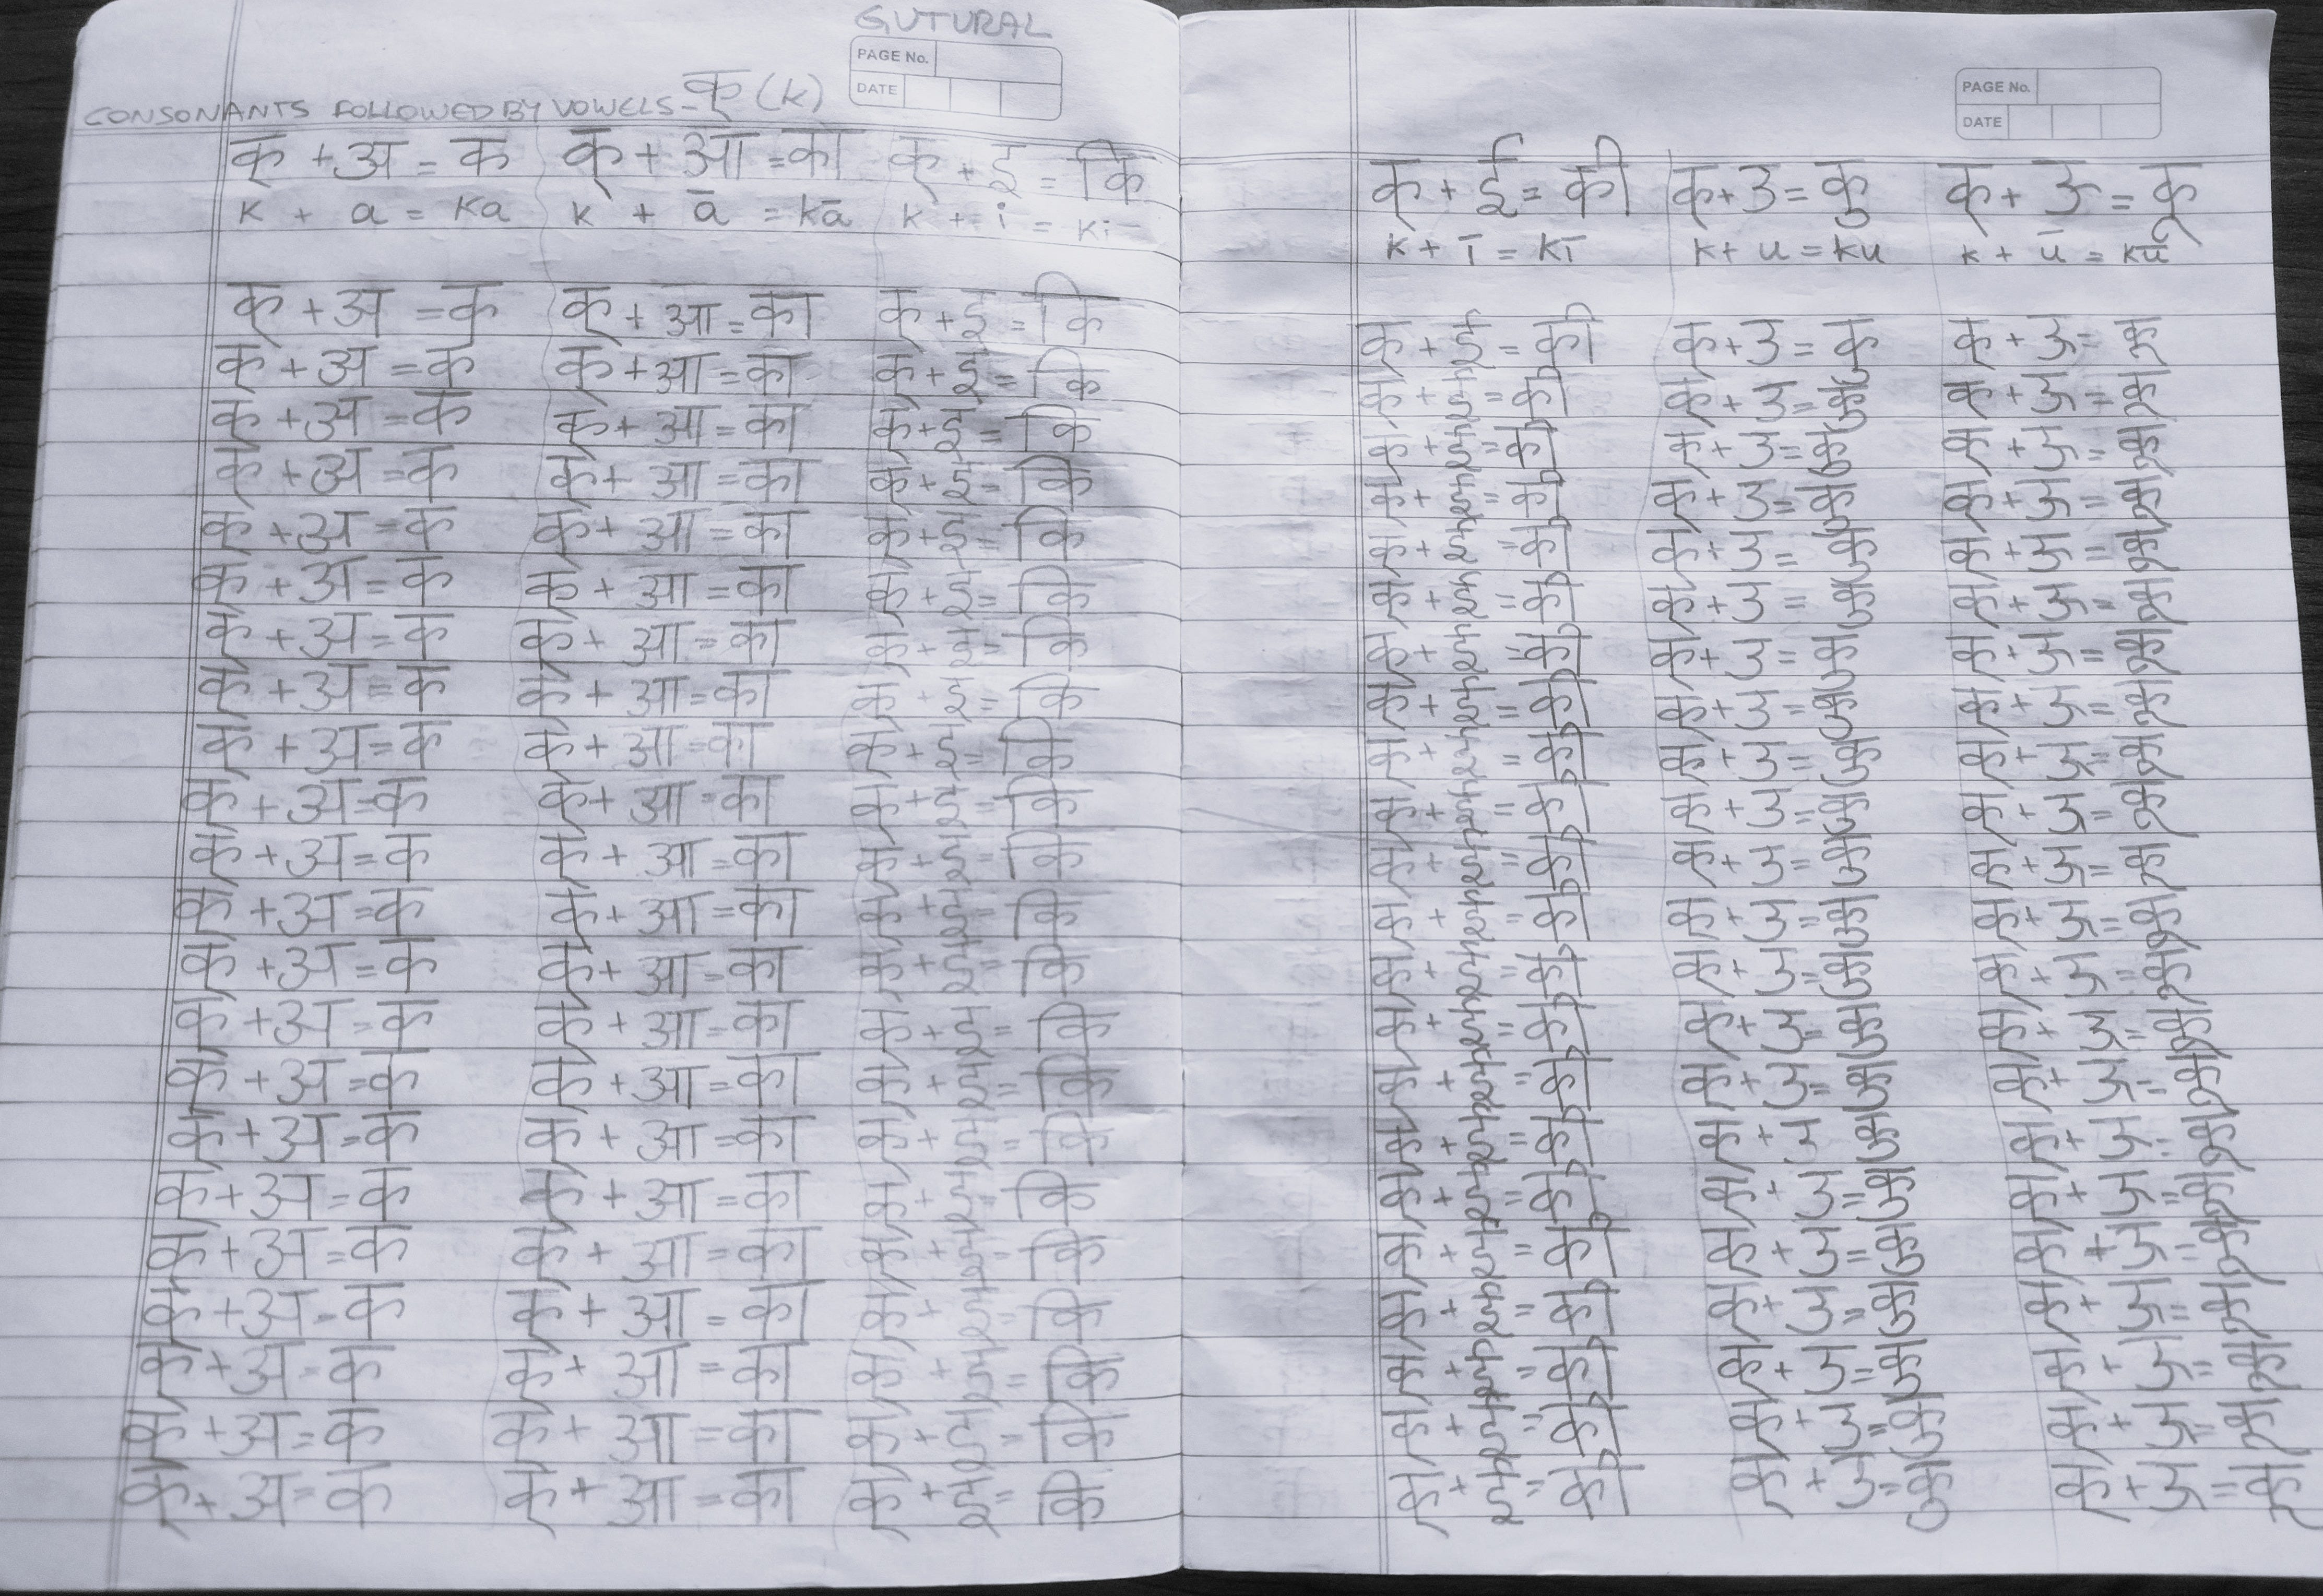 GUTURAL
PAGE No.
DATE
CONSONANTS FOLLOWED BY VOWELS - क् (k)
क् + अ = क क् + आ = का क् + इ = कि
k + a = ka k + ā = kā k + i = ki
क् + अ = क क् + आ = का क् + इ = कि
क् + अ = क क् + आ = का क् + इ = कि
क् + अ = क क् + आ = का क् + इ = कि
क् + अ = क क् + आ = का क् + इ = कि
क् + अ = क क् + आ = का क् + इ = कि
क् + अ = क क् + आ = का क् + इ = कि
क् + अ = क क् + आ = का क् + इ = कि
क् + अ = क क् + आ = का क् + इ = कि
क् + अ = क क् + आ = का क् + इ = कि
क् + अ = क क् + आ = का क् + इ = कि
क् + अ = क क् + आ = का क् + इ = कि
क् + अ = क क् + आ = का क् + इ = कि
क् + अ = क क् + आ = का क् + इ = कि
क् + अ = क क् + आ = का क् + इ = कि
क् + अ = क क् + आ = का क् + इ = कि
क् + अ = क क् + आ = का क् + इ = कि
क् + अ = क क् + आ = का क् + इ = कि
क् + अ = क क् + आ = का क् + इ = कि
क् + अ = क क् + आ = का क् + इ = कि
क् + अ = क क् + आ = का क् + इ = कि
क् + अ = क क् + आ = का क् + इ = कि
क् + अ = क क् + आ = का क् + इ = कि
PAGE No.
DATE
क् + ई = की क् + उ = कु क् + ऊ = कू
k + ī = kī k + u = ku k + ū = kū
क् + ई = की क् + उ = कु क् + ऊ = कू
क् + ई = की क् + उ = कु क् + ऊ = कू
क् + ई = की क् + उ = कु क् + ऊ = कू
क् + ई = की क् + उ = कु क् + ऊ = कू
क् + ई = की क् + उ = कु क् + ऊ = कू
क् + ई = की क् + उ = कु क् + ऊ = कू
क् + ई = की क् + उ = कु क् + ऊ = कू
क् + ई = की क् + उ = कु क् + ऊ = कू
क् + ई = की क् + उ = कु क् + ऊ = कू
क् + ई = की क् + उ = कु क् + ऊ = कू
क् + ई = की क् + उ = कु क् + ऊ = कू
क् + ई = की क् + उ = कु क् + ऊ = कू
क् + ई = की क् + उ = कु क् + ऊ = कू
क् + ई = की क् + उ = कु क् + ऊ = कू
क् + ई = की क् + उ = कु क् + ऊ = कू
क् + ई = की क् + उ कु क् + ऊ = कू
क् + ई = की क् + उ = कु क् + ऊ = कू
क् + ई = की क् + उ = कु क् + ऊ = कू
क् + ई = की क् + उ = कु क् + ऊ = कू
क् + ई = की क् + उ = कु क् + ऊ = कू
क् + ई = की क् + उ = कु क् + ऊ = कू
क् + ई = की क् + उ = कु क् + ऊ = कू